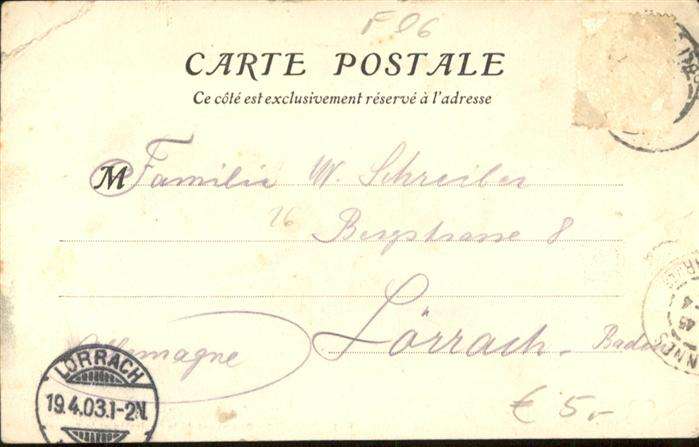 F 06
CARTE POSTALE
Ce côté est exclusivement réservé à l'adresse
M Familie W. Schreiber
26
Bergstrasse 8
Lörrach. Baden
Allemagne
LÖRRACH
19.4.03.1-2N.
€ 5,-